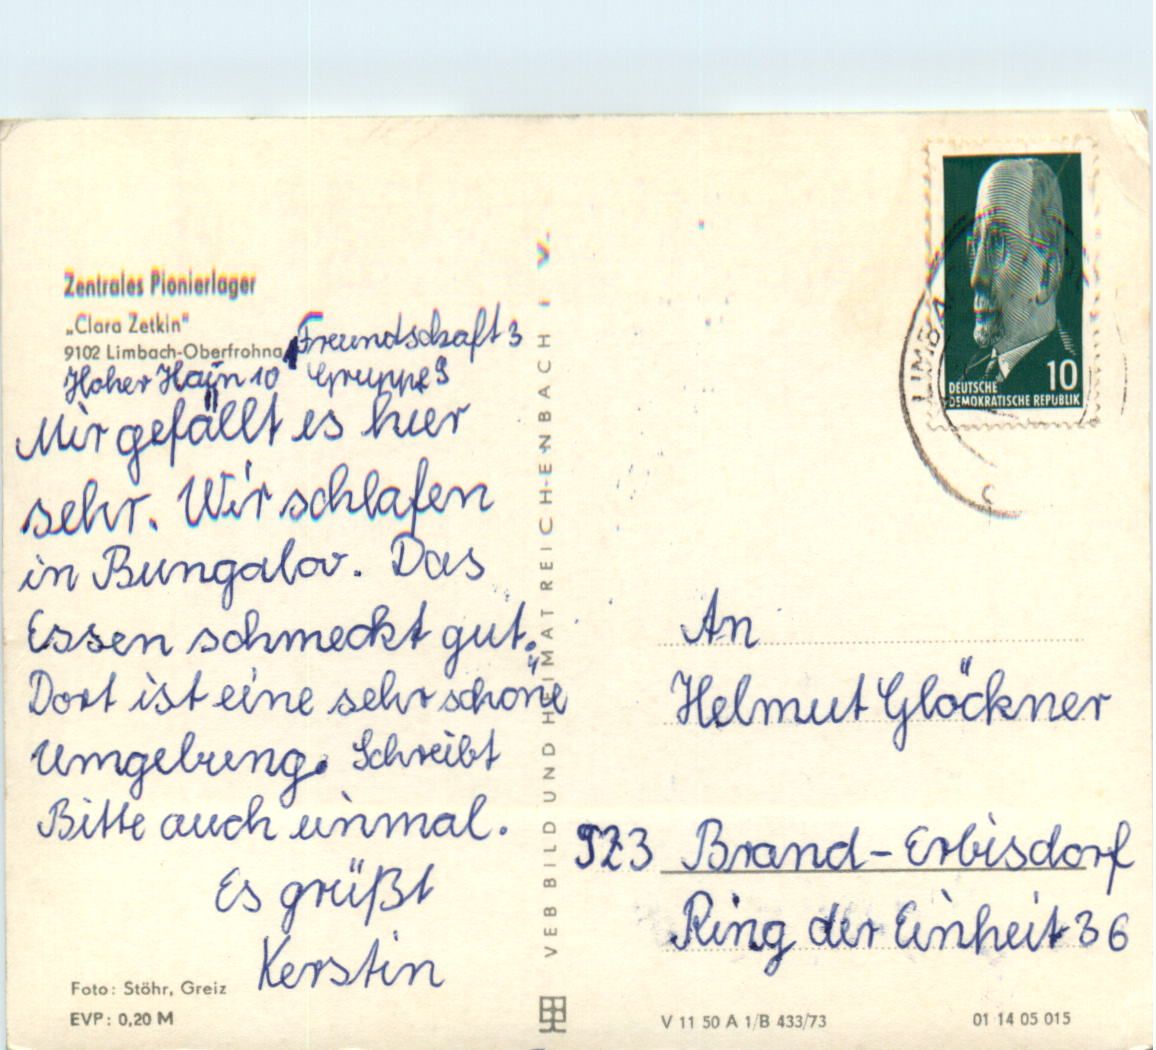 Zentrales Pionierlager
„Clara Zetkin"
9102 Limbach-Oberfrohna
Freundschaft 3
Hoher Hain 10 Gruppe 9
Mir gefällt es hier
sehr. Wir schlafen
in Bungalov. Das
Essen schmeckt gut.
Dort ist eine sehr schöne
Umgebung. Schreibt
Bitte auch einmal.
Es grüßt
Kerstin
Foto: Stöhr, Greiz
EVP: 0,20 M
VEB BILD UND HEIMAT REICHENBACH I. V.
DEUTSCHE
DEMOKRATISCHE REPUBLIK
10
LIMBA
An
Helmut Glöckner
923 Brand-Erbisdorf
Ring der Einheit 36
V 11 50 A 1/B 433/73
01 14 05 015